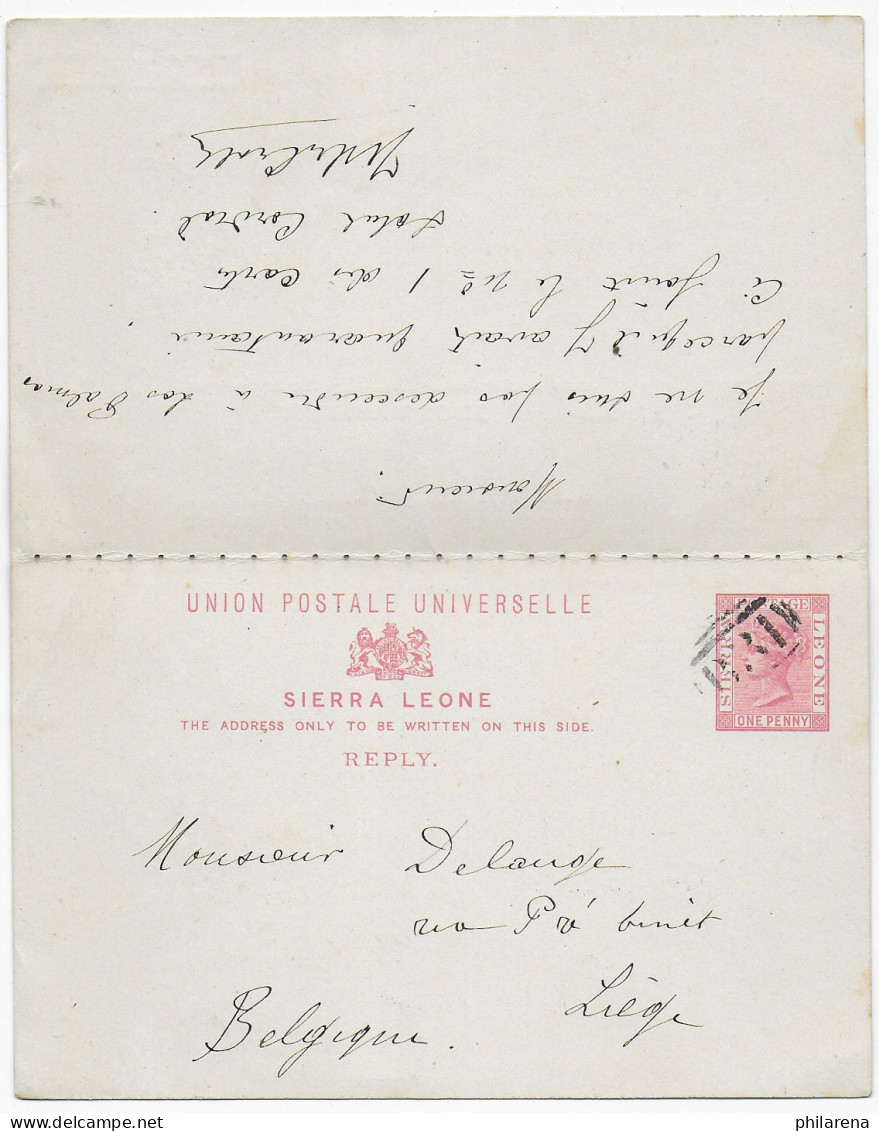 Monsieur.
Je ne suis pas descendu à Las Palmas
parcequ'il y avait quarantaine.
Ci joint le No 1 des Carts
Salut Cordial
UNION POSTALE UNIVERSELLE
SIERRA LEONE
THE ADDRESS ONLY TO BE WRITTEN ON THIS SIDE.
REPLY.
SIERRA LEONE
POSTAGE
ONE PENNY
Monsieur Delauge
rue Pré binet
Liège
Belgique.
philarena